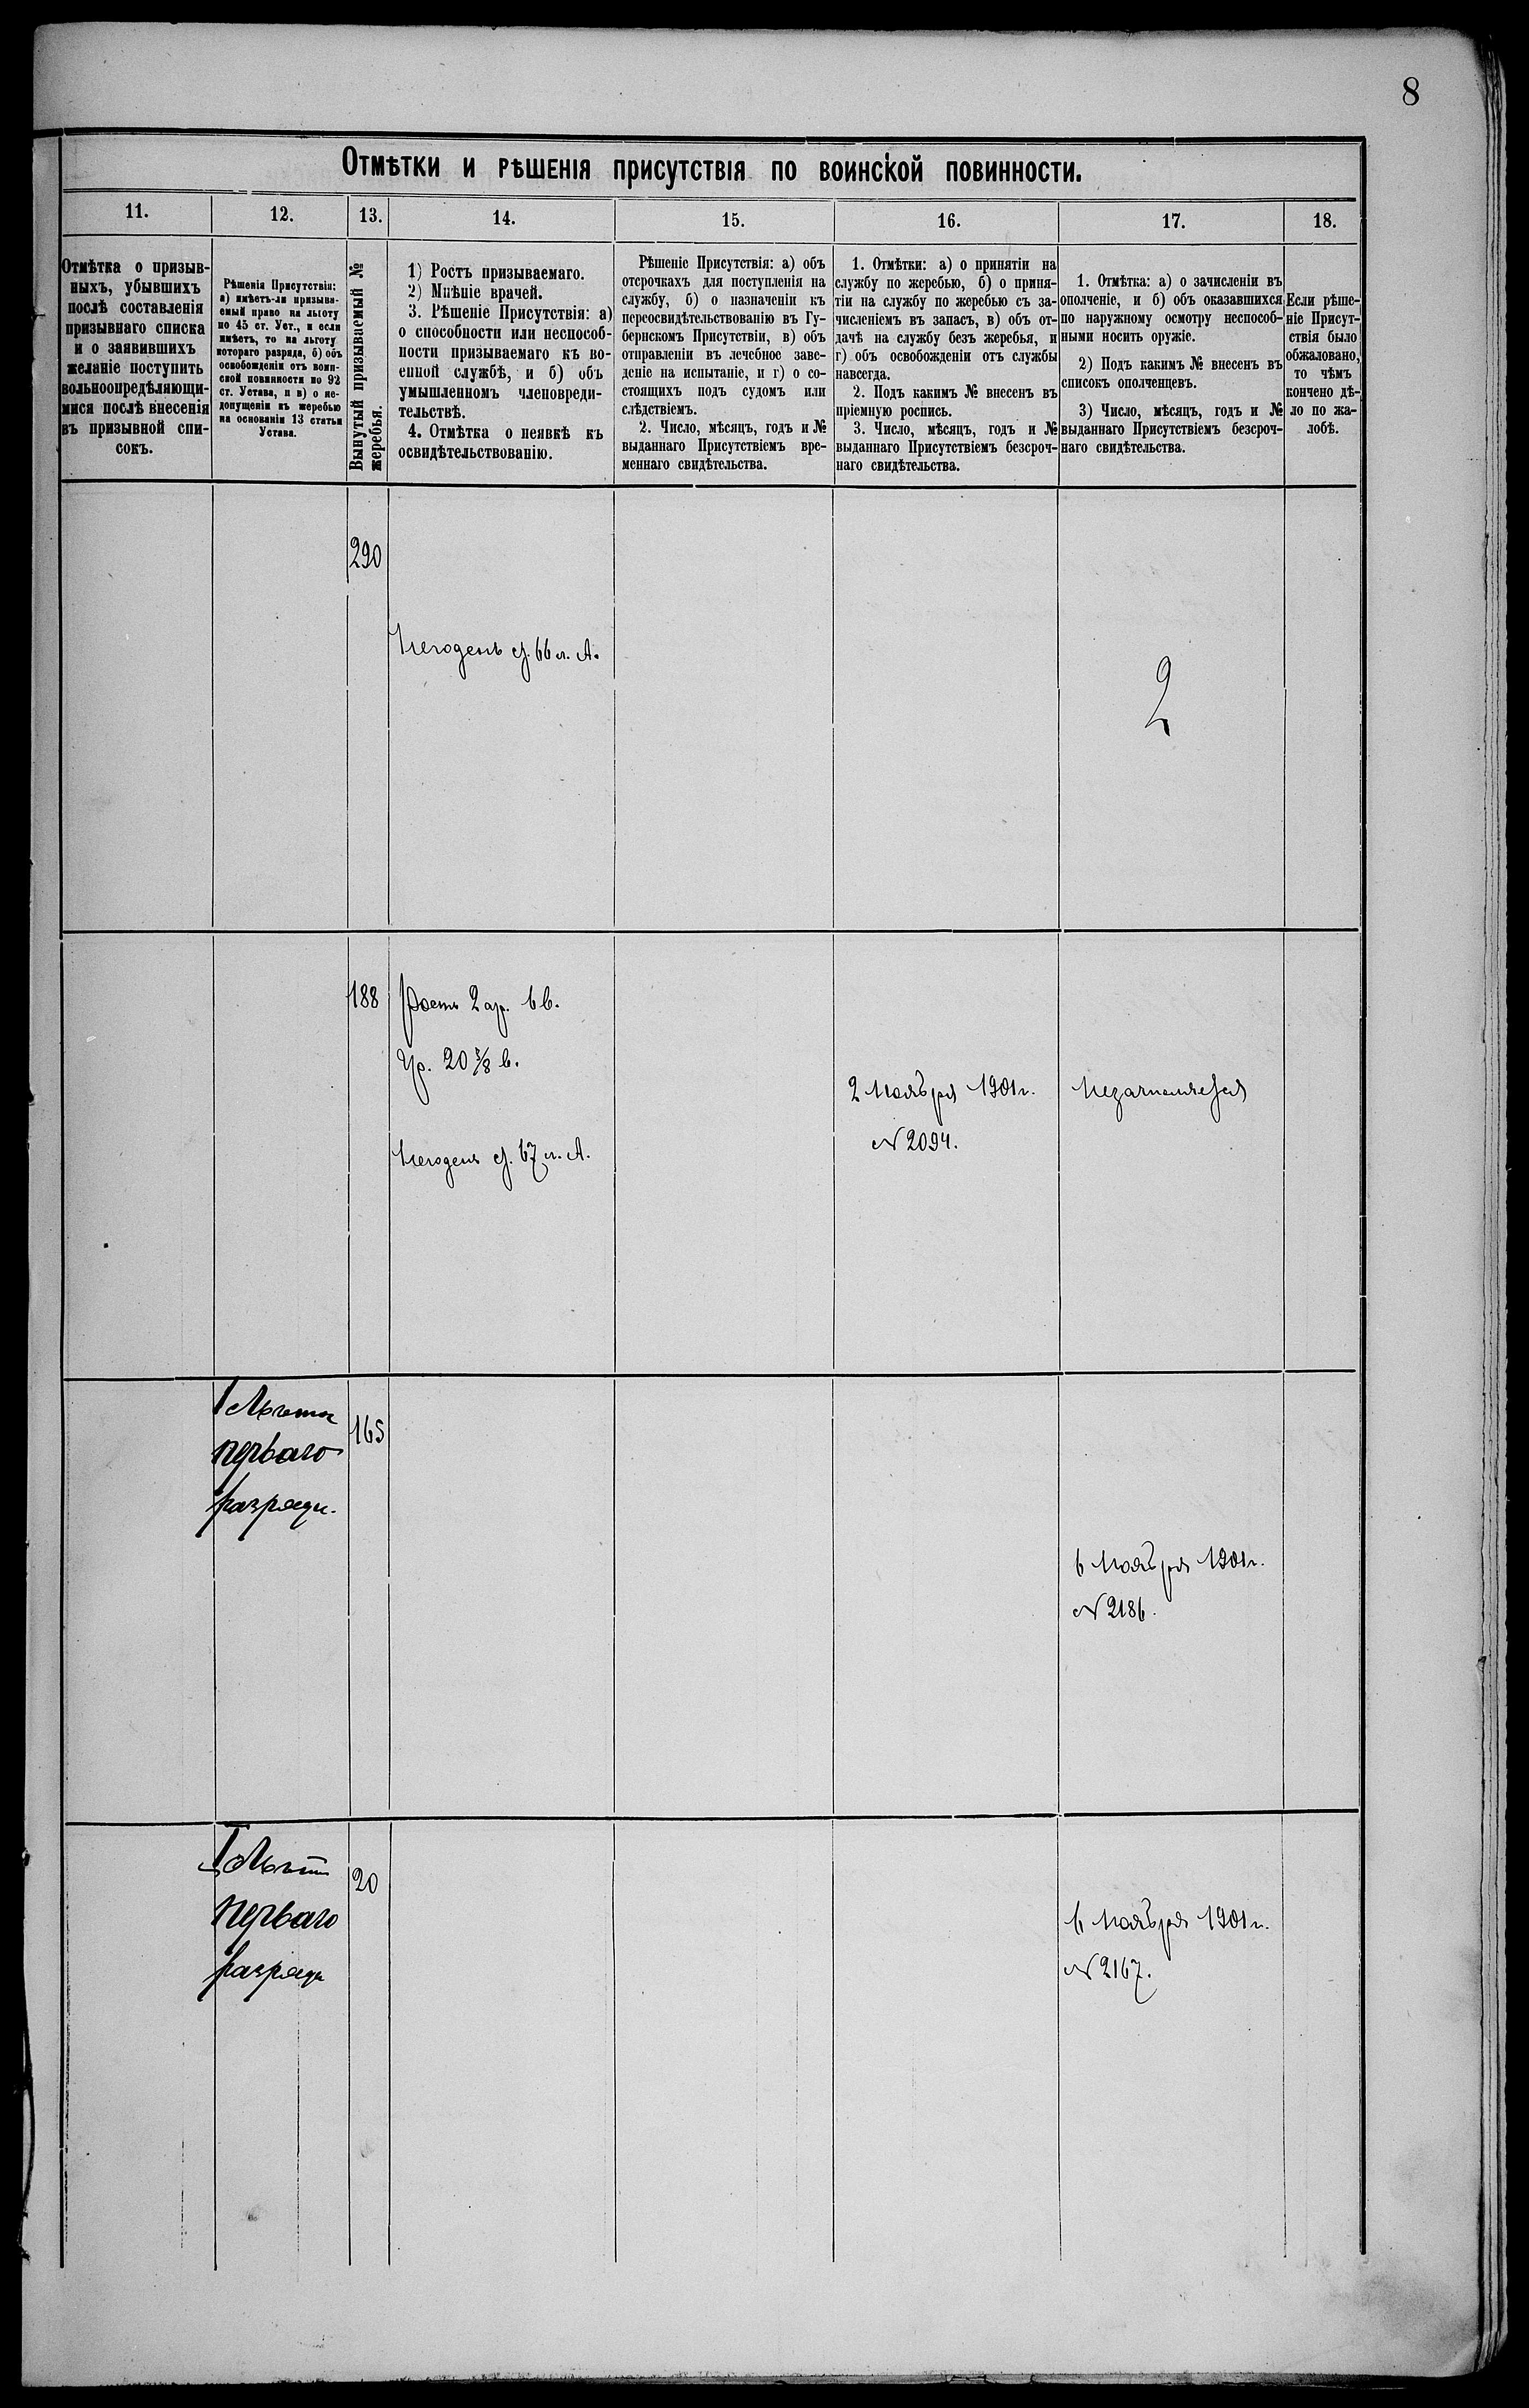 8
Отмѣтки и рѣшенія присутствія по воинской повинности.
11.
12.
13.
14.
15.
16.
17.
18.
Отмѣтка о призыв-
ныхъ, убывшихъ
послѣ составленія
призывнаго списка
и о заявившихъ
желаніе поступить
вольноопредѣляющи-
мися послѣ внесенія
въ призывной спи-
сокъ.
Рѣшенія Присутствія:
а) имѣетъ-ли призыва-
емый право на льготу
по 45 ст. Уст., и если
имѣетъ, то на льготу
котораго разряда, б) объ
освобожденіи отъ воин-
ской повинности по 92
ст. Устава, и в) о не-
допущеніи къ жеребью
на основаніи 13 статьи
Устава.
Вынутый призываемый №
жеребья.
1) Ростъ призываемаго.
2) Мнѣніе врачей.
3. Рѣшеніе Присутствія: а)
о способности или неспособ-
ности призываемаго къ во-
енной службѣ, и б) объ
умышленномъ членовреди-
тельствѣ.
4. Отмѣтка о неявкѣ къ
освидѣтельствованію.
Рѣшеніе Присутствія: а) объ
отсрочкахъ для поступленія на
службу, б) о назначеніи къ
переосвидѣтельствованію въ Гу-
бернскомъ Присутствіи, в) объ
отправленіи въ лечебное заве-
деніе на испытаніе, и г) о со-
стоящихъ подъ судомъ или
слѣдствіемъ.
2. Число, мѣсяцъ, годъ и №
выданнаго Присутствіемъ вре-
меннаго свидѣтельства.
1. Отмѣтки: а) о принятіи на
службу по жеребью, б) о приня-
тіи на службу по жеребью съ за-
численіемъ въ запасъ, в) объ от-
дачѣ на службу безъ жеребья, и
г) объ освобожденіи отъ службы
навсегда.
2. Подъ какимъ № внесенъ въ
пріемную роспись.
3. Число, мѣсяцъ, годъ и №
выданнаго Присутствіемъ безсроч-
наго свидѣтельства.
1. Отмѣтка: а) о зачисленіи въ
ополченіе, и б) объ оказавшихся
по наружному осмотру неспособ-
ными носить оружіе.
2) Подъ какимъ № внесенъ въ
списокъ ополченцевъ.
3) Число, мѣсяцъ, годъ и №
выданнаго Присутствіемъ безсроч-
наго свидѣтельства.
Если рѣше-
ніе Присут-
ствія было
обжаловано,
то чѣмъ
кончено дѣ-
ло по жа-
лобѣ.
290
Негоденъ 66 л. А.
2
188
Ростъ 2 ар. 6 в.
Гр. 20 5/8 в.
Негоденъ 67 л. А.
2 Ноября 1901 г.
N 2094.
Незачисляется
Льгота
перваго
разряда.
165
6 Ноября 1901 г.
N 2186.
Льгота
перваго
разряда
20
6 Ноября 1901 г.
N 2167.